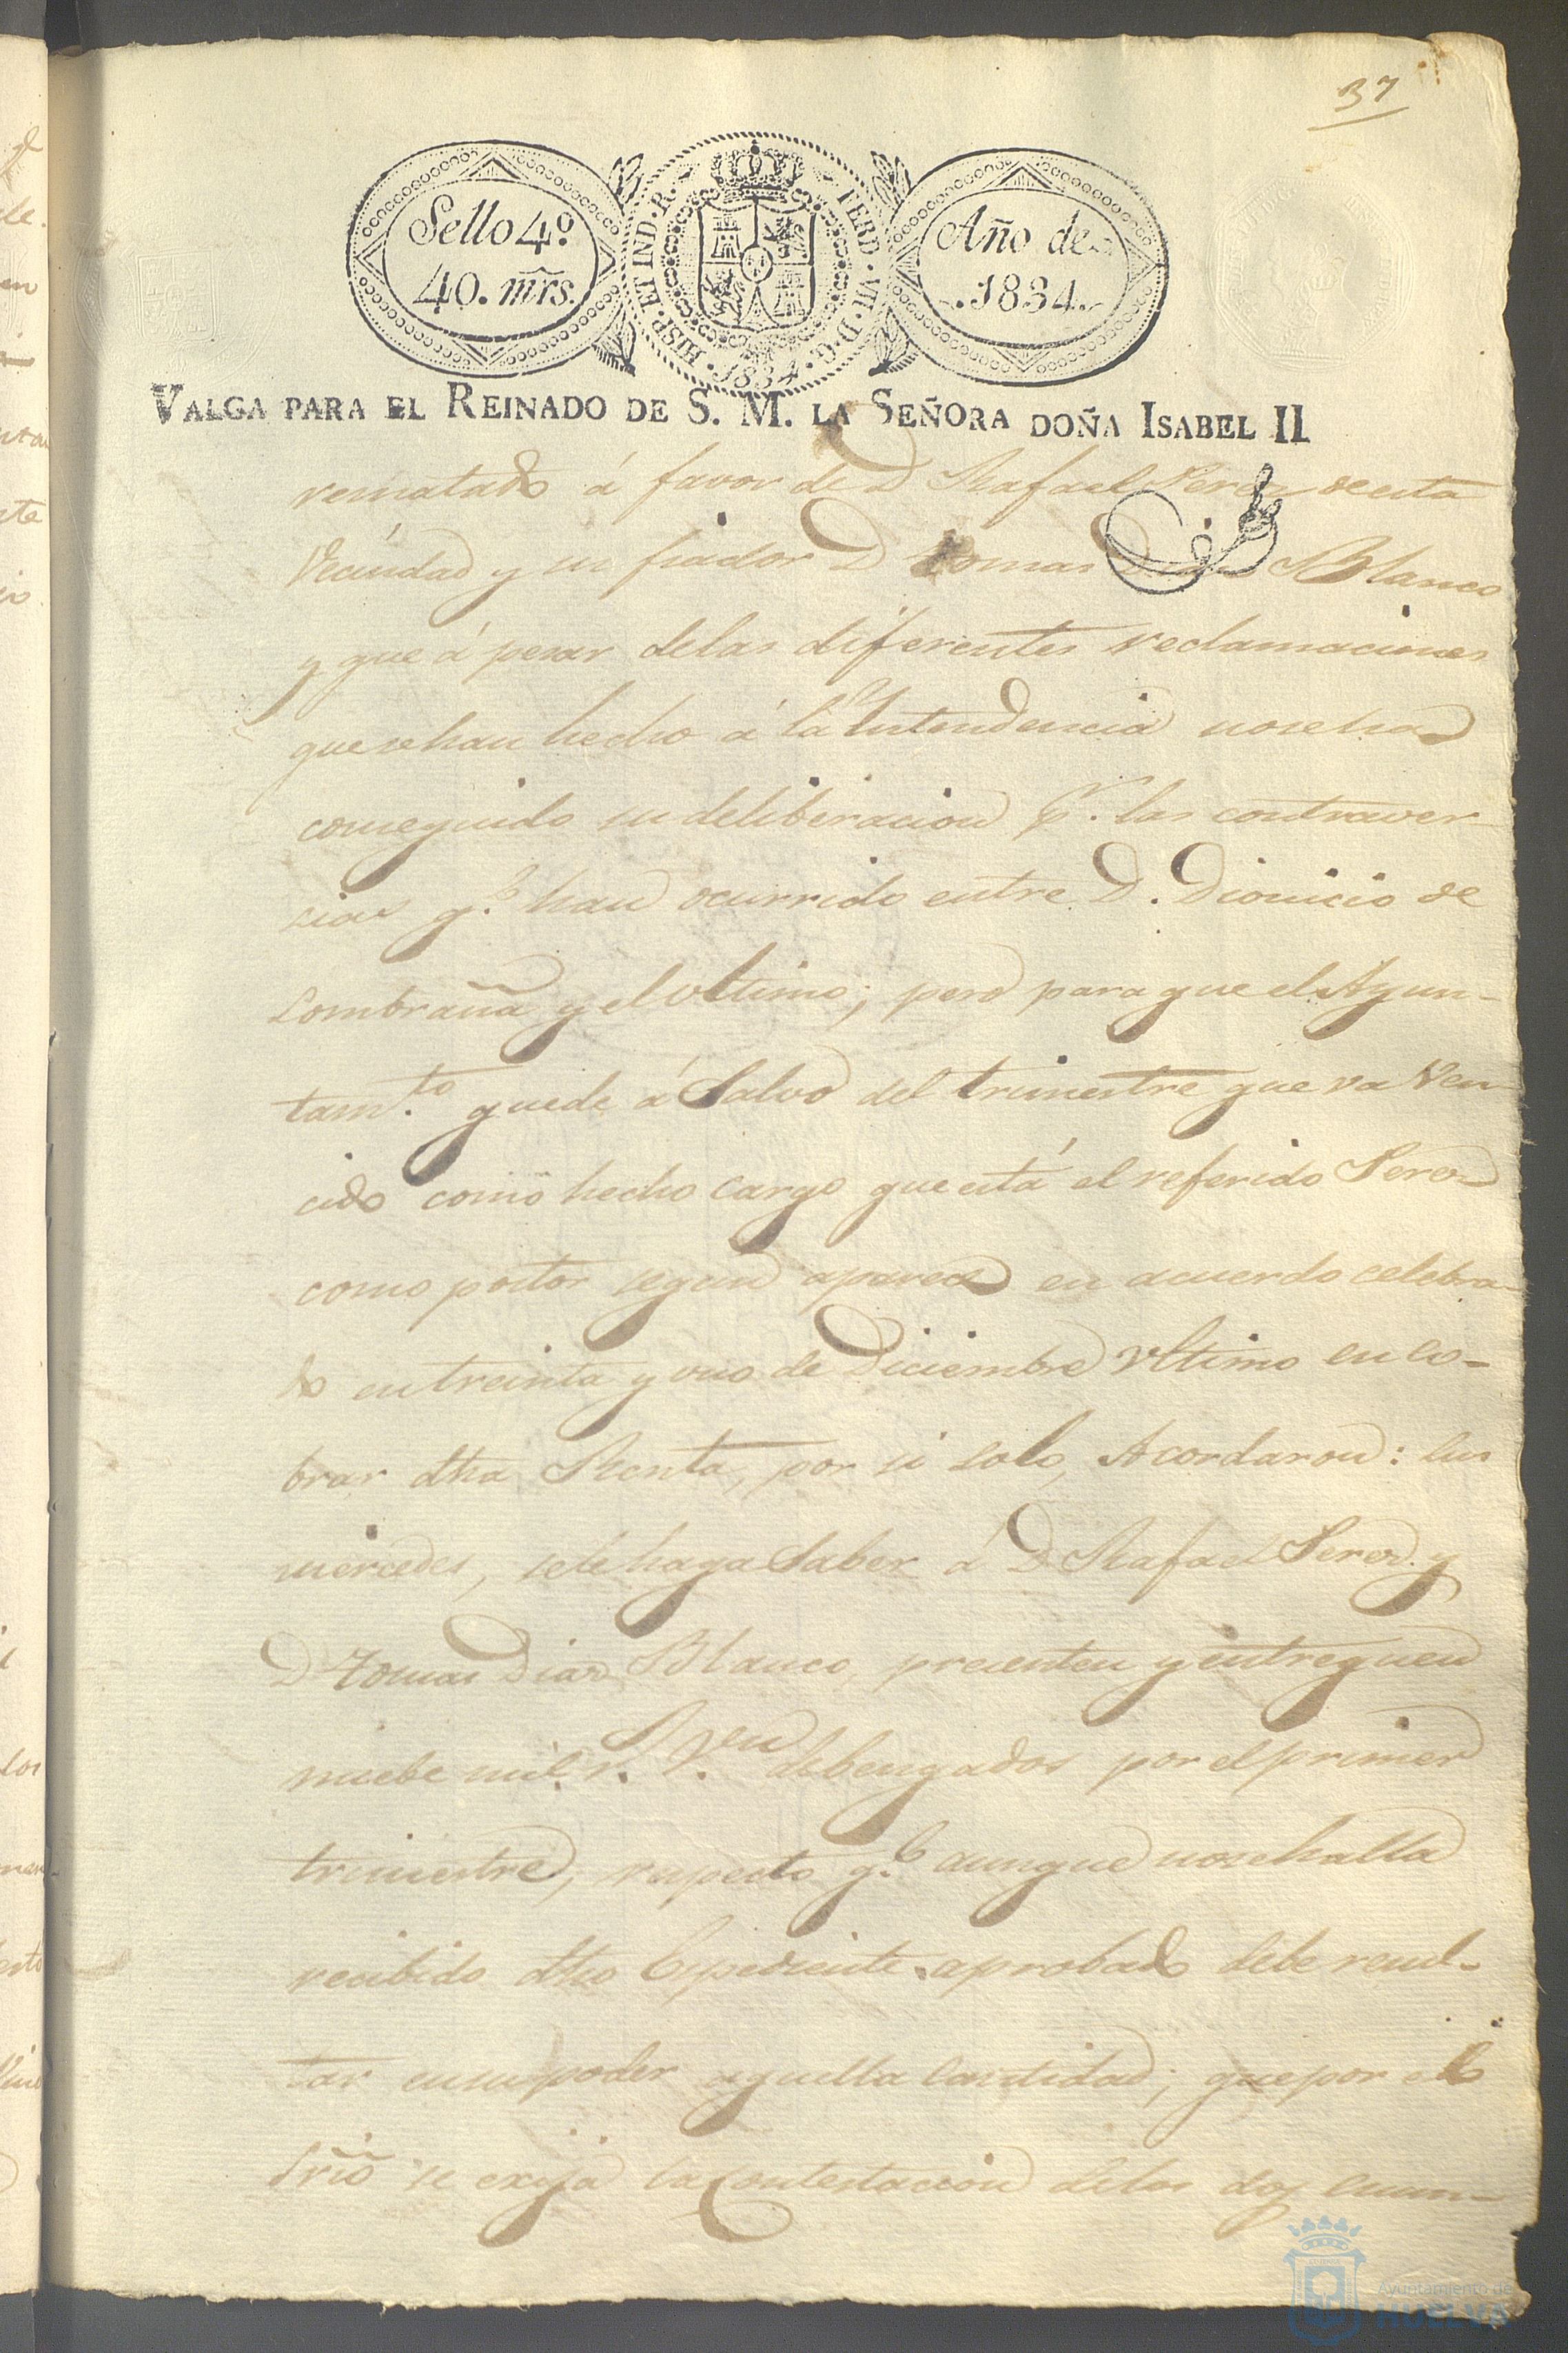 37
Sello 4º
40. mrs.
HISP. ET IND. R. FERD. VII. D. G. 1834.
Año de
1834.
VALGA PARA EL REINADO DE S. M. LA SEÑORA DOÑA ISABEL II
rematado á favor de D Rafael Perez de esta
Vecindad y su fiador D Tomas Diaz Blanco
y que á pesar de las diferentes reclamaciones
que se han hecho á la Yntendencia no se ha
conseguido su deliberacion p.r las contraver-
cias q.e han ocurrido entre D. Dionicio de
Lombraña y el ultimo; pero para que el Ayun-
tam.to quede á Salvo del trimestre que va Ven-
cido como hecho cargo que está el referido Perez
como postor segun aparece en acuerdo celebra-
do en treinta y uno de Diciembre Ultimo en co-
brar dha Renta, por si solo, Acordaron: sus
mercedes, se le haga Saber á D Rafael Perez y
D Tomas Diaz Blanco, presenten y entreguen
nuebe mil r.s V.on debengados por el primer
trimestre, respecto q.e aunque no se halla
recibido dho Espediente aprobado debe resul-
tar en su poder aquella Cantidad; que por el
Srio se exija la Contestacion de los dos cuan-
Ayuntamiento de
HUELVA